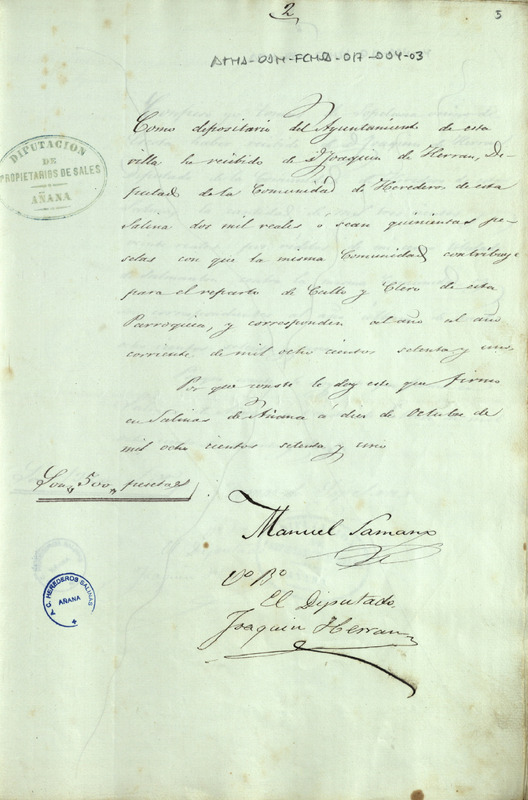 2
5
ATHA-DAH-FCHA-017-004-03
DIPUTACION
DE
PROPIETARIOS DE SALES
AÑANA
Como depositario del Ayuntamiento de esta
villa he recibido de D. Joaquin de Herran, Di-
putad de la Comunidad de Herederos de esta
Salina dos mil reales o sean quinientas pe-
setas con que la misma Comunidad contribuye
para el reparto de Culto y Clero de esta
Parroquia, y corresponden al año al año
corriente de mil ocho cientos setenta y uno
Por que conste le doy este que firmo
en Salinas de Añana á diez de Octubre de
mil ocho cientos setenta y uno
Son, 500, pesetas
Manuel Samano
Vº Bº
El Diputado
Joaquin Herran
C. HEREDEROS SALINAS
AÑANA